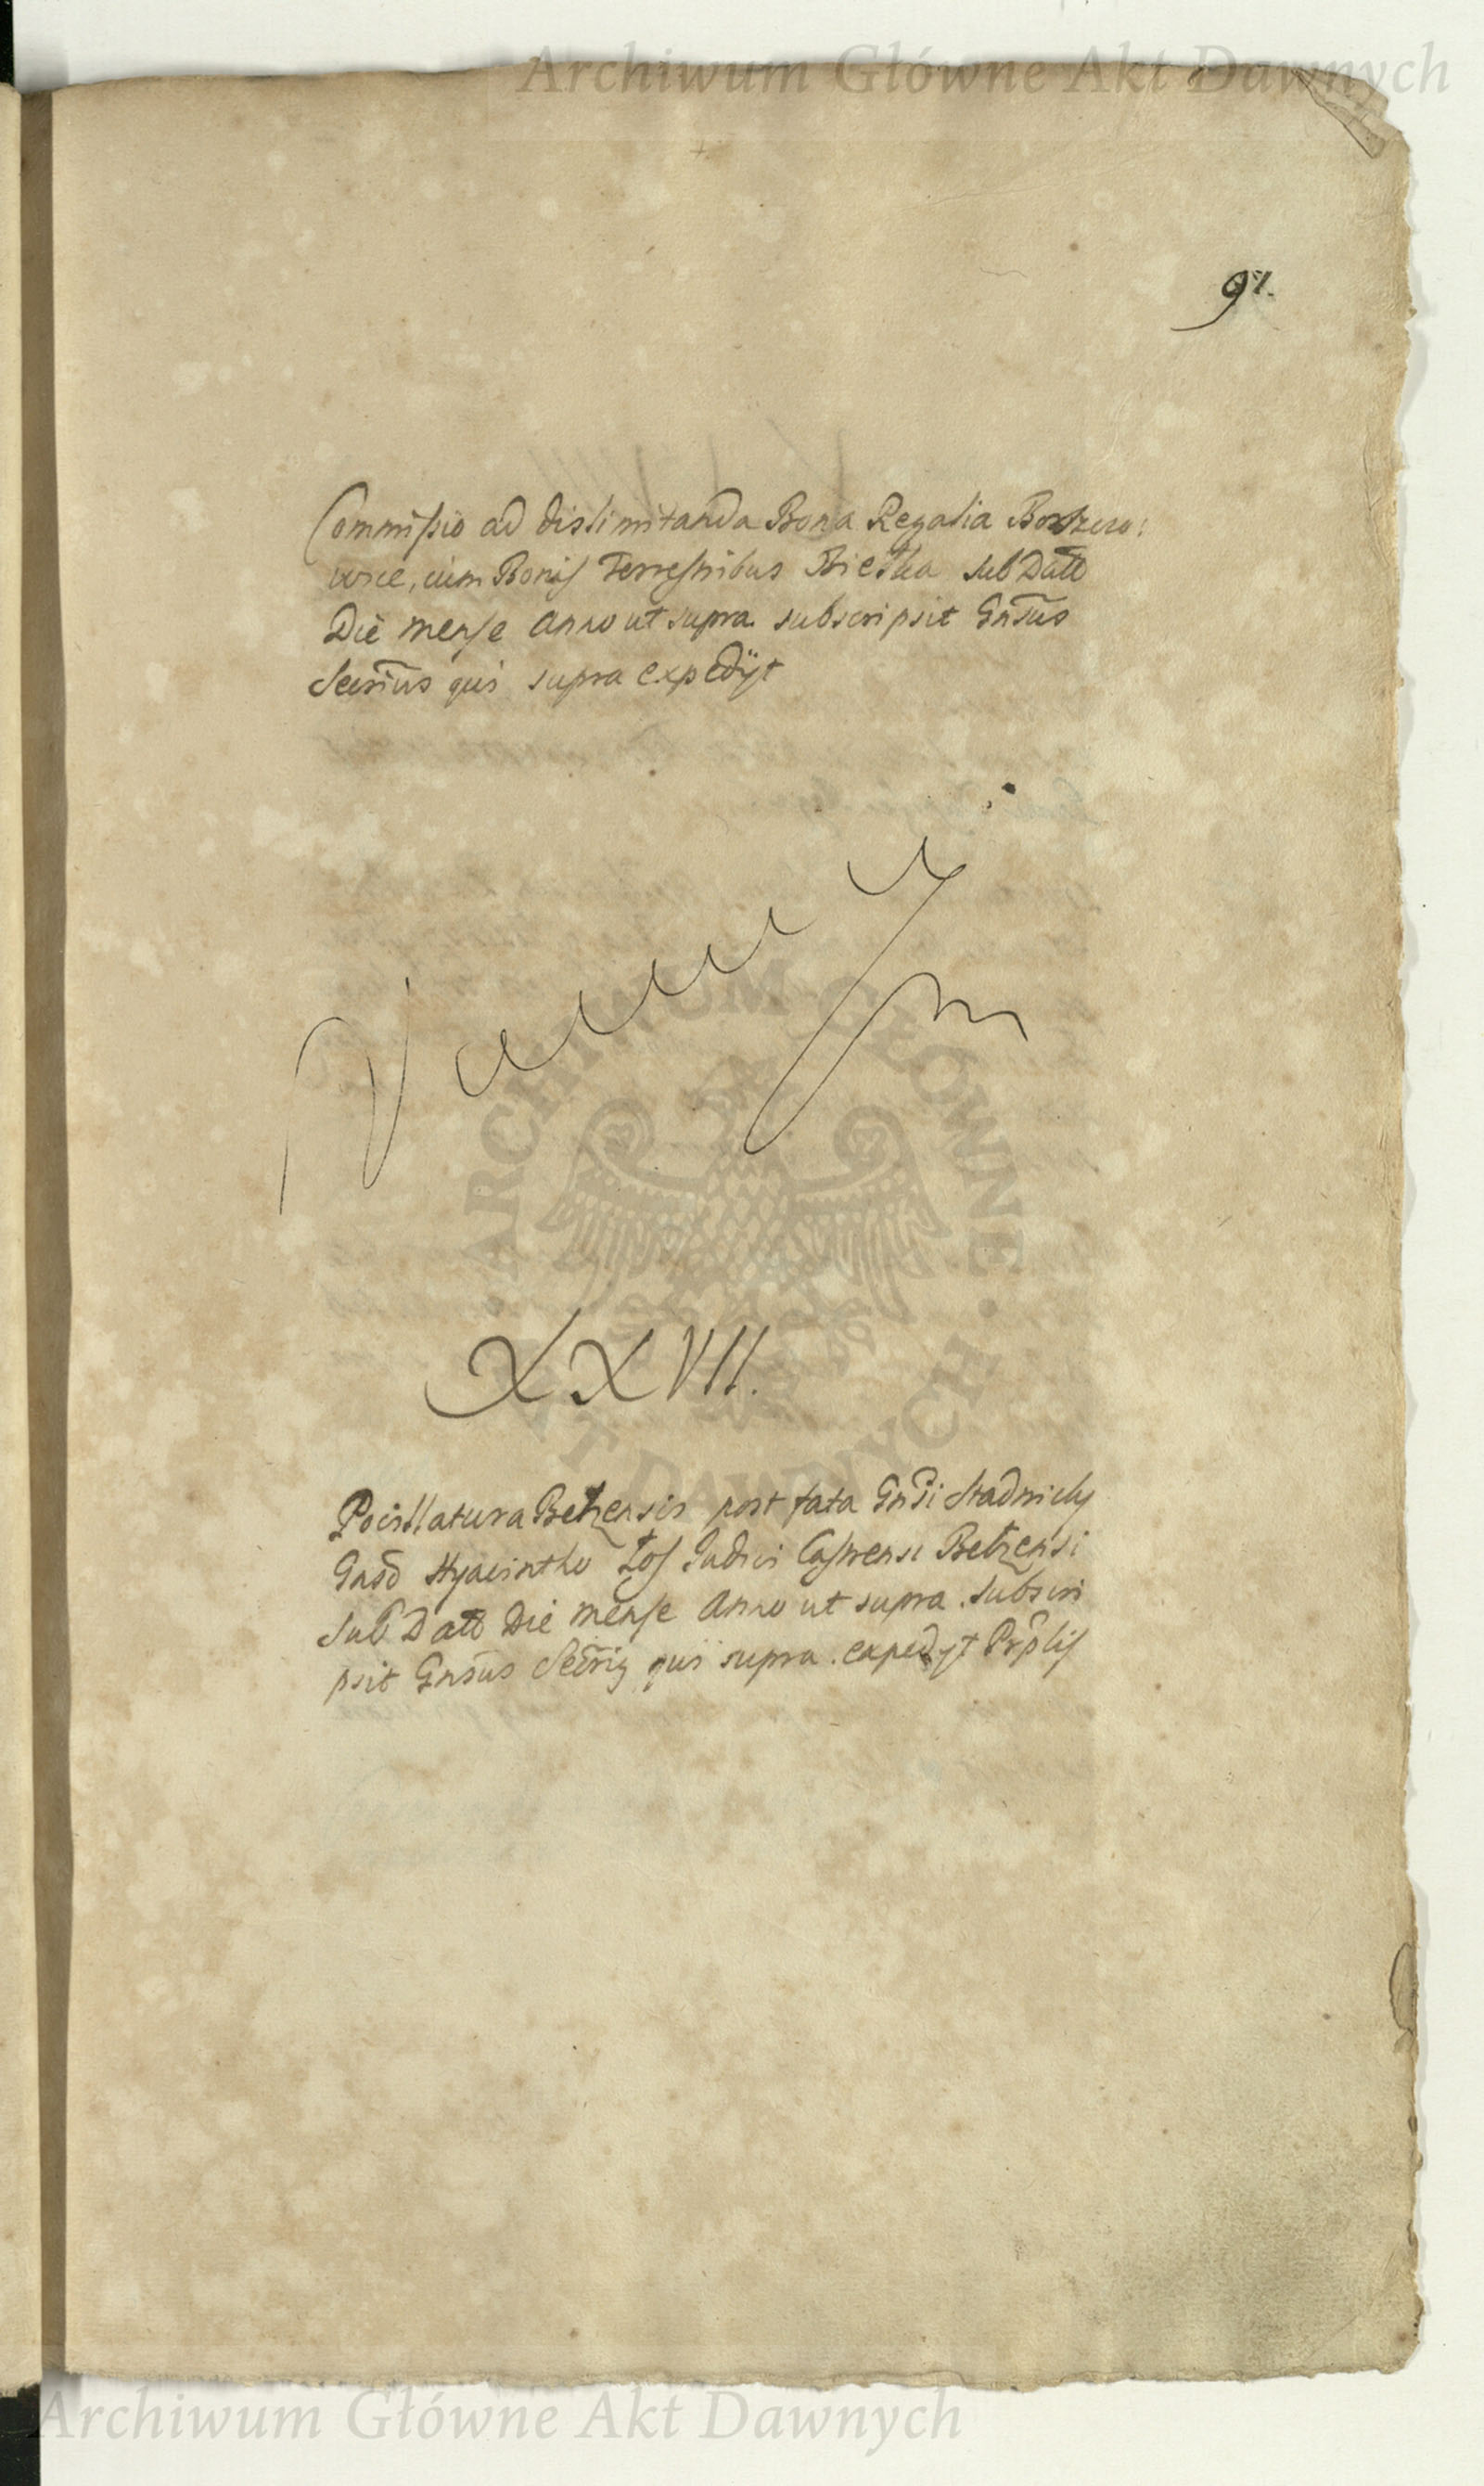 Archiwum Główne Akt Dawnych
97.
Commissio ad dislimitanda Bona Regalia
cum Bonis Terrestribus sub Datt
Die mense Anno ut supra subscripsit Gnsus
Secrius qui supra expedyt
Vacuu
XXVII.
Pocillatura Belzensis post fata Gnsi Stadnicky
Gnso Hyacintho Łoś Judici Castrensi Belzensi
sub Datt Die mense Anno ut supra. subscri
psit Gnsus Secrig qui supra. expedyt Prplis
ARCHIWUM GŁÓWNE • AKT DAWNYCH •
Archiwum Główne Akt Dawnych